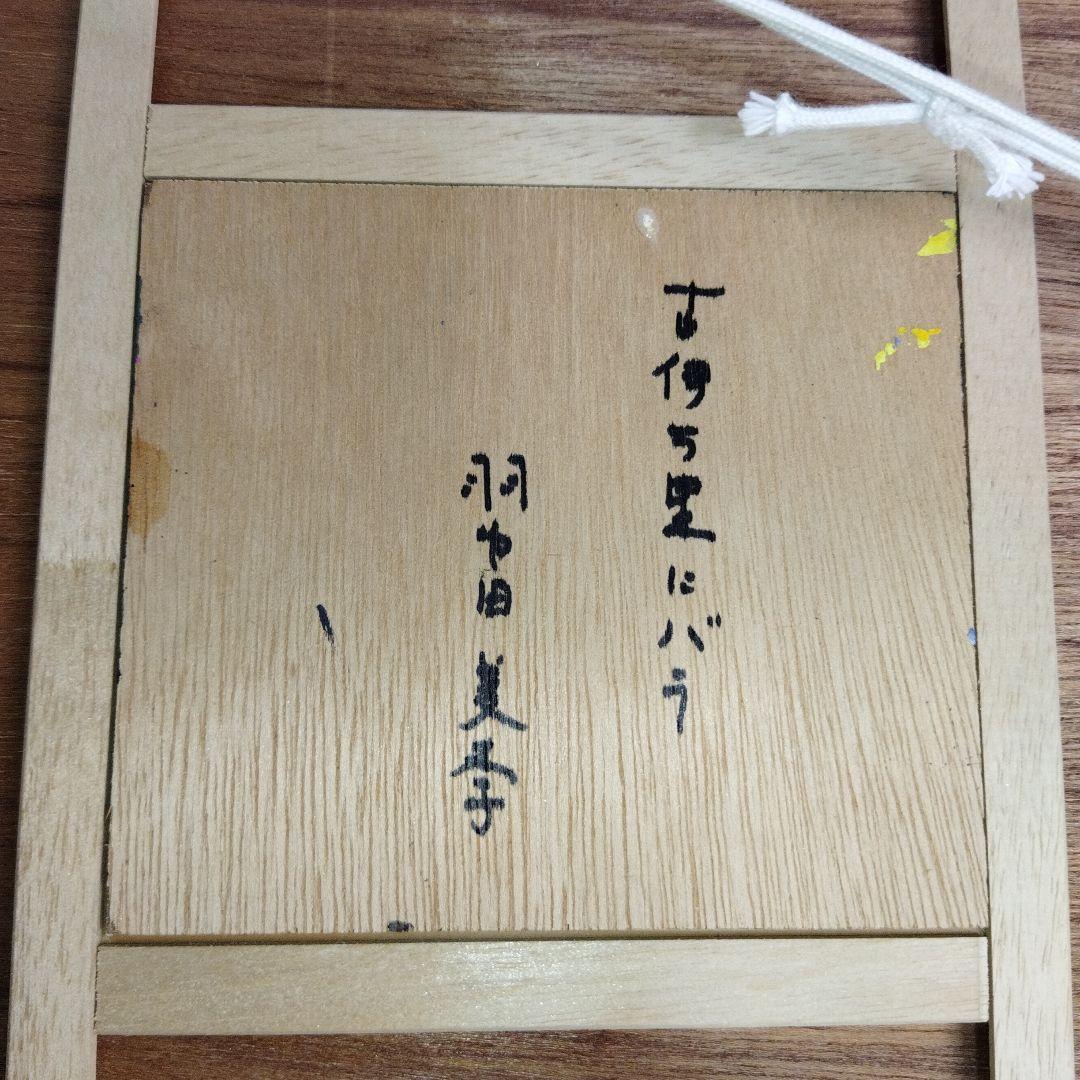 古伊万里にバラ
羽中田 美季